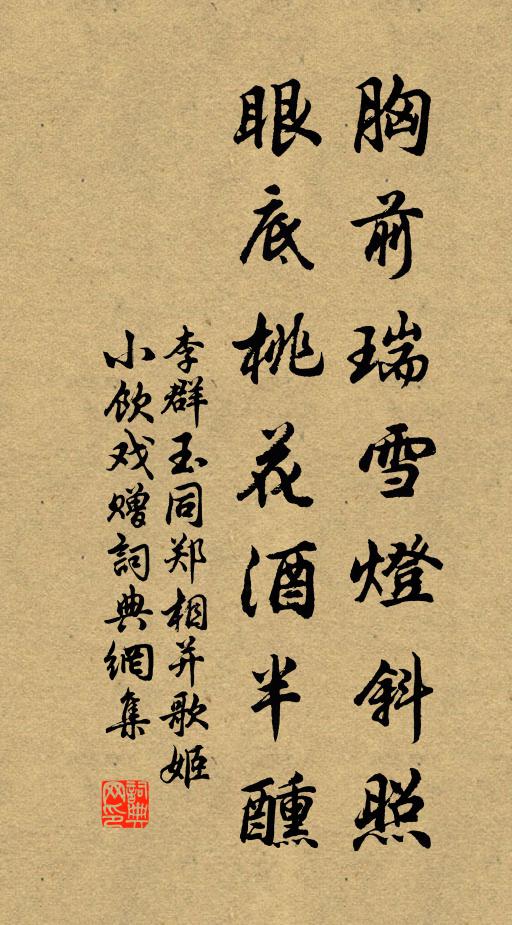 胸前瑞雪燈斜照
眼底桃花酒半醺
李群玉同郑相并歌姬
小饮戏赠詞典網集
詞典网印